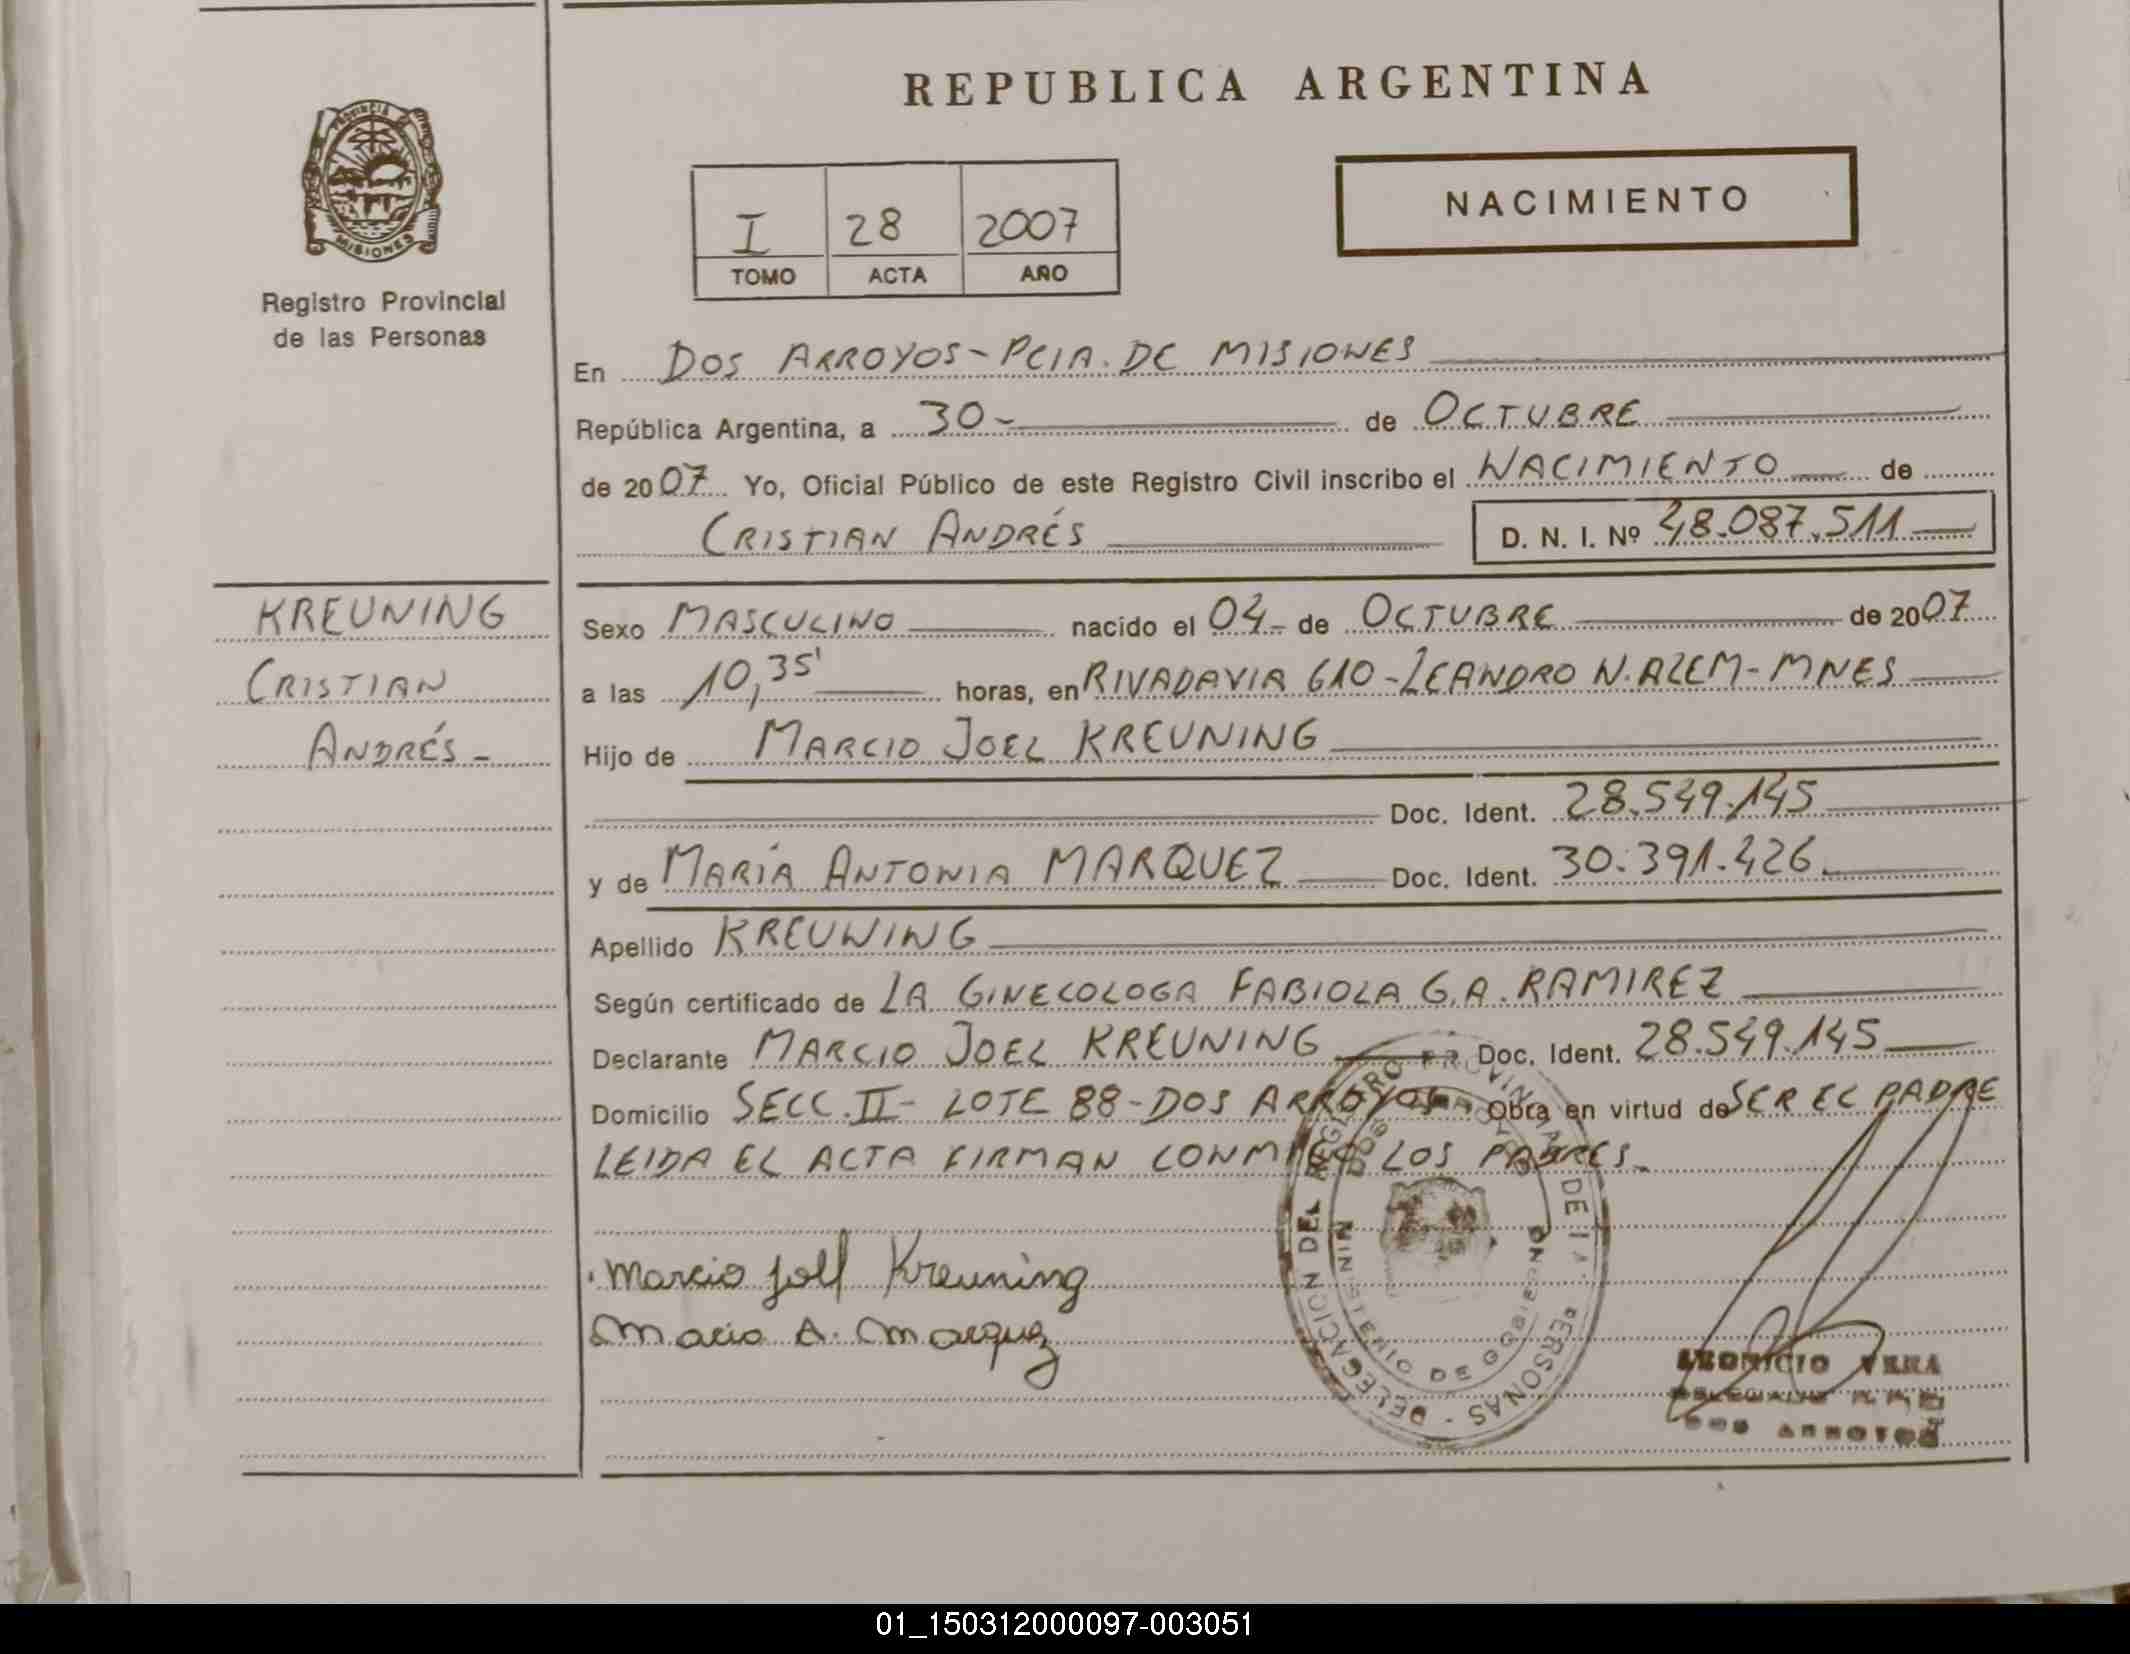 REPUBLICA ARGENTINA
PROVINCIA DE MISIONES
Registro Provincial
de las Personas
I 28 2007
TOMO ACTA AÑO
NACIMIENTO
En DOS ARROYOS-PCIA. DE MISIONES
República Argentina, a 30- de OCTUBRE
de 2007 Yo, Oficial Público de este Registro Civil inscribo el NACIMIENTO de
CRISTIAN ANDRÉS D. N. I. Nº 48.087.511
KREUNING
CRISTIAN
ANDRÉS-
Sexo MASCULINO nacido el 04- de OCTUBRE de 2007
a las 10,35' horas, en RIVADAVIA 610-LEANDRO N. ALEM-MNES
Hijo de MARCIO JOEL KREUNING
Doc. Ident. 28.549.145
y de MARÍA ANTONIA MARQUEZ Doc. Ident. 30.391.426
Apellido KREUNING
Según certificado de LA GINECOLOGA FABIOLA G.A. RAMIREZ
Declarante MARCIO JOEL KREUNING Doc. Ident. 28.549.145
Domicilio SECC. II- LOTE 88-DOS ARROYOS Obra en virtud de SER EL PADRE
LEIDA EL ACTA FIRMAN CONMIGO LOS PADRES.
Marcio Joel Kreuning
Maria A. Marquez
DELEGACION DEL REGISTRO PROVINCIAL DE LAS PERSONAS
DOS ARROYOS
MINISTERIO DE GOBIERNO
LEONICIO VERA
DOS ARROYOS
01_150312000097-003051